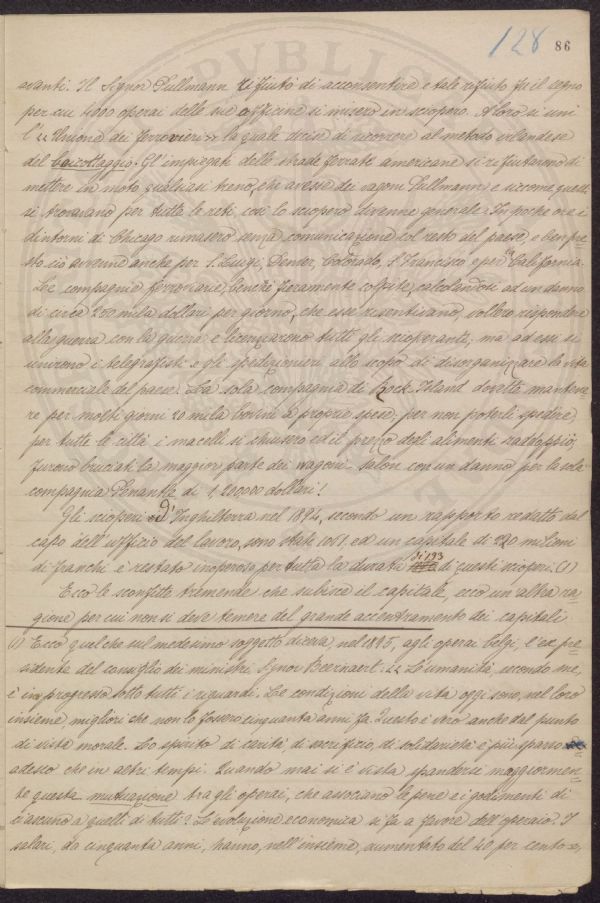 128 86
avanti. Il Signor Pullmann rifiutò di acconsentire e tale rifiuto fu il segno
per cui 4000 operai delle sue officine si misero in sciopero. A loro si unì
l'« Unione dei ferrovieri » la quale decise di ricorrere al metodo irlandese
del boicottaggio. Gl'impiegati delle strade ferrate americane si rifiutarono di
mettere in moto qualsiasi treno, che avesse dei vagoni Pullmann e siccome questi
si trovavano per tutte le reti, così lo sciopero divenne generale. In poche ore i
dintorni di Chicago rimasero senza comunicazione col resto del paese, e ben pre=
sto ciò avvenne anche per S. Luigi, Denver, Colorado, S. Francisco e per la California.
Le compagnie ferroviarie, benchè fieramente colpite, calcolandosi ad un danno
di circa 200 mila dollari per giorno, che esse risentivano, vollero rispondere
alla guerra con la guerra e licenziarono tutti gli scioperanti; ma ad essi si
unirono i telegrafisti e gli spedizionieri allo scopo di disorganizzare la vita
commerciale del paese. La sola compagnia di Rock Island dovette mantene=
re per molti giorni 20 mila bovini a proprie spese, per non poterli spedire;
per tutte le città i macelli si chiusero ed il prezzo degli alimenti raddoppiò;
furono bruciati la maggior parte dei wagoni salon con un danno per la sola
compagnia di 1,200000 dollari!
Gli scioperi d'Inghilterra nel 1894, secondo un rapporto redatto dal
capo dell'ufficio del lavoro, sono stati 1061, ed un capitale di 220 milioni
di franchi è restato inoperoso per tutta la durata di 193 di questi scioperi. (1)
Ecco le sconfitte tremende che subisce il capitale, ecco un'altra ra=
gione per cui non si deve temere del grande accentramento dei capitali
(1) Ecco quel che sul medesimo soggetto diceva, nel 1895, agli operai belgi, l'ex pre=
sidente del consiglio dei ministri, Signor Beernaert: « L'umanità, secondo me,
è in progresso sotto tutti i riguardi. Le condizioni della vita oggi sono, nel loro
insieme, migliori che non lo fossero cinquanta anni fa. Questo è vero anche dal punto
di vista morale. Lo spirito di carità, di sacrificio, di solidarietà è più sparso
adesso che in altri tempi. Quando mai si è vista spandersi maggiormen=
te questa mutuazione tra gli operai, che associano le pene e i godimenti di
ciascuno a quelli di tutti? L'evoluzione economica si fa a favore dell'operaio. I
salari, da cinquanta anni, hanno, nell'insieme, aumentato del 40 per cento,